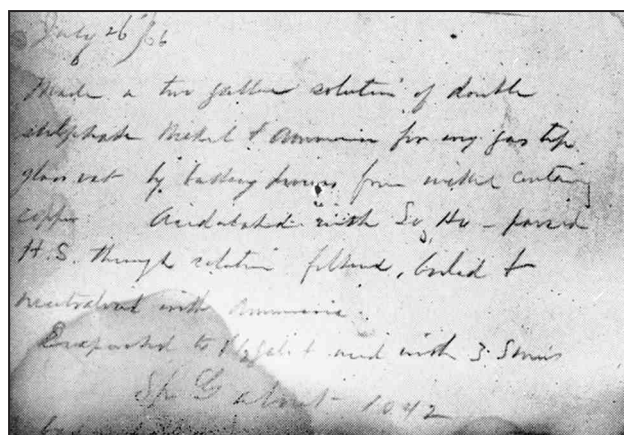 July 26/66
Made a two gallon solution of double
sulphate Nickel & Ammonia for my gas top
glass vat by battery process from nickel containg
copper. Acidulated with So3 Ho – passed
H.S. through solution filtered, boiled &
neutralized with Ammonia.
Evaporated to gals & with 3
Sp G about 1042